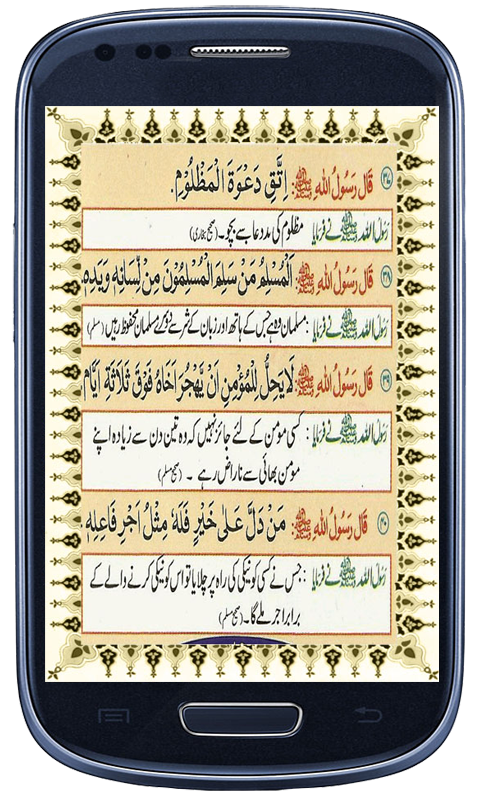 ۳۷ قَالَ رَسُوْلُ اللهِ ﷺ: اِتَّقِ دَعْوَةَ الْمَظْلُوْمِ.
رسول اللہ ﷺ نے فرمایا مظلوم کی بددعا سے بچو۔ (صحیح بخاری)
۳۸ قَالَ رَسُوْلُ اللهِ ﷺ: اَلْمُسْلِمُ مَنْ سَلِمَ الْمُسْلِمُوْنَ مِنْ لِّسَانِهٖ وَيَدِهٖ
رسول اللہ ﷺ نے فرمایا: مسلمان وہ ہے جس کے ہاتھ اور زبان کے شر سے دوسرے مسلمان محفوظ رہیں (مسلم)
۳۹ قَالَ رَسُوْلُ اللهِ ﷺ: لَا يَحِلُّ لِلْمُؤْمِنِ اَنْ يَّهْجُرَ اَخَاهُ فَوْقَ ثَلَاثَةِ اَيَّامٍ
رسول اللہ ﷺ نے فرمایا: کسی مومن کے لئے جائز نہیں کہ وہ تین دن سے زیادہ اپنے
مومن بھائی سے ناراض رہے۔ (صحیح مسلم)
۴۰ قَالَ رَسُوْلُ اللهِ ﷺ: مَنْ دَلَّ عَلٰى خَيْرٍ فَلَهٗ مِثْلُ اَجْرِ فَاعِلِهٖ.
رسول اللہ ﷺ نے فرمایا: جس نے کسی کو نیکی کی راہ پر چلایا تو اس کو نیکی کرنے والے کے
برابر اجر ملے گا۔ (صحیح مسلم)